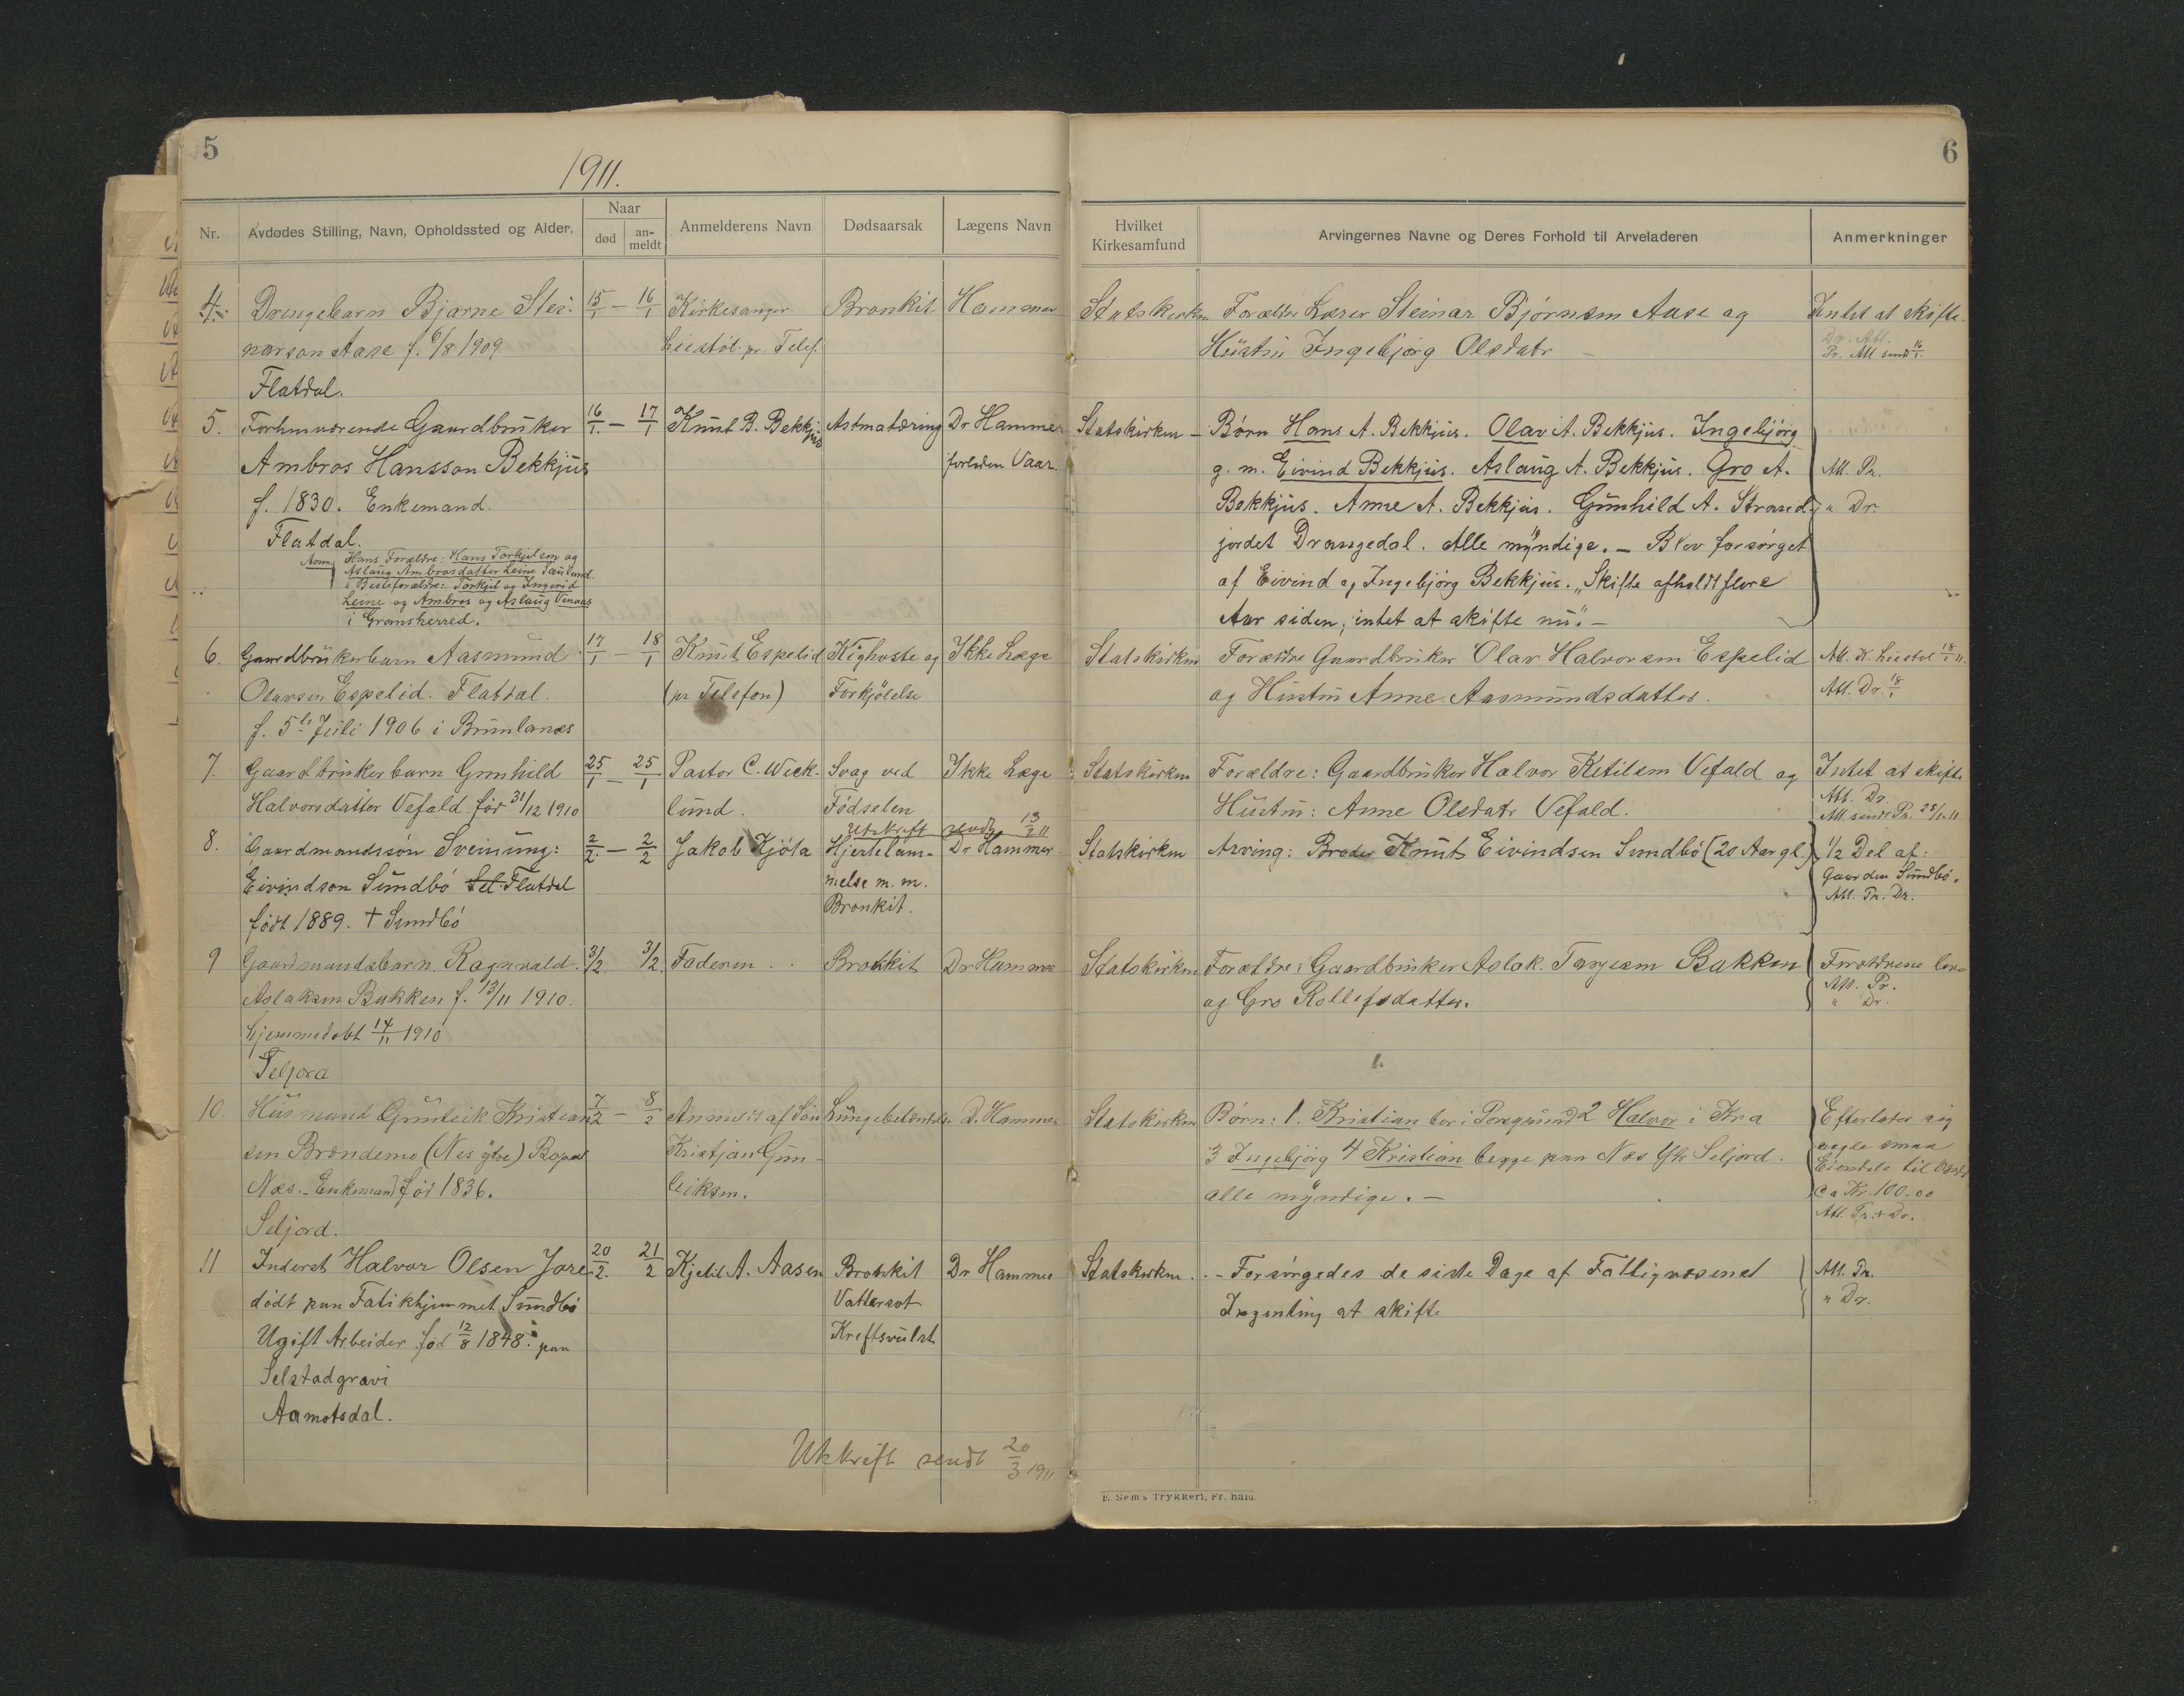 5
1911.
6
Nr. Avdødes Stilling, Navn, Opholdssted og Alder. Naar død an-meldt Anmelderens Navn Dødsaarsak Lægens Navn Hvilket Kirkesamfund Arvingernes Navne og Deres Forhold til Arveladeren Anmerkninger
4. Drengebarn Bjarne Stei- 15/1 — 16/1 Kirkesanger Bronkit Hammer Statskirken Forældre Lærer Steinar Bjørnsen Aase og Intet at skifte.
narson Aase f. 6/8 1909 Liestøl pr. Telef. Hustru Ingebjørg Olsdatr — Dr. Att.
Pr. Att sendt 16/1.
Flatdal.
5. Forhenværende Gaardbruker 16/1. — 17/1 Knut B. Bekkjus Astmatæring Dr Hammer Statskirken — Børn Hans A. Bekkjus. Olav A. Bekkjus. Ingebjørg
Ambros Hansson Bekkjus forleden Vaar. g. m. Eivind Bekkjus. Aslaug A. Bekkjus. Gro A. Att. Pr.
f. 1830. Enkemand. Bekkjus. Anne A. Bekkjus. Gunhild A. Strand- " Dr.
Flatdal. jordet Drangedal. Alle myndige. — Blev forsørget
Anm Hans Forældre: Hans Torkjelsen og
Aslaug Ambrosdatter Leine Sauland. af Eivind og Ingebjørg Bekkjus. „Skifte afholdt flere
" Besteforældre: Torkjel og Ingerid
Leine og Ambros og Aslaug Vinaas Aar siden, intet at skifte nu". —
i Gransherred.
6. Gaardbrukerbarn Aasmund 17/1 — 18/1 Knut Espelid Kighoste og Ikke Læge Statskirken Forældre Gaardbruker Olav Halvorsen Espelid Att. K. Liestøl 18/1 11.
Olavsen Espelid. Flatdal. (pr Telefon) Forkjølelse og Hustru Anne Aasmundsdatter. Att. Dr. 18/1
f. 5te Juli 1906 i Brunlanæs
7. Gaardbrukerbarn Gunhild 25/1 — 25/1 Pastor C. Weck- Svag ved Ikke Læge Statskirken Forældre: Gaardbruker Halvor Ketilsen Vefald og Intet at skifte
Halvorsdatter Vefald født 31/12 1910 lund. Fødselen Hustru: Anne Olsdatr Vefald. Att. Dr.
Att. sendt Pr. 25/1 11
Utskrift sendt 13/2 11
8. Gaardmandssøn Sveinung: 2/2. — 2/2 Jakob Kjøla Hjertelam- Dr Hammer Statskirken Arving: Broder Knut Eivindsen Sundbø (20 Aar gl.) 1/2 Del af:
Eivindson Sundbø Sel. Flatdal melse m. m. Gaarden Sundbø.
født 1889. † Sundbø Bronkit. Att. Pr. Dr.
9 Gaardmandsbarn Ragnvald 3/2. 3/2. Faderen Bronkit Dr Hammer Statskirken Forældre: Gaardbruker Aslak Tarjeisen Bakken Forældrene lever
Aslaksen Bakken f. 13/11 1910. og Gro Rollefsdatter. Att. Pr.
" Dr.
hjemmedøbt 14/11 1910
Seljord
10. Husmand Gunleik Kristian- 7/2 — 8/2 Anmeldt af Søn Lungebetændelse D. Hammer Statskirken Børn: 1. Kristian bor i Porsgrund 2 Halvor i Kra Efterlater sig
sen Brøndemo (Nes ytre) Bopæl Kristjan Gun- 3 Ingebjørg 4 Kristian begge paa Næs Ytr Seljord. nogle smaa
Næs. Enkemand født 1836. leiksen. alle myndige. — Eiendele til Værdi
ca Kr. 100.00
Seljord. Att. Pr. + Dr.
11 Inderst Halvor Olsen Jore 20/2. 21/2 Kjetil A. Aasen Bronkit Dr Hammer Statskirken. — Forsørgedes de siste Dage af Fattigvæsenet Att. Pr.
dødt paa Fatikhjemmet Sundbø Vattersot Ingenting at skifte " Dr.
Ugift Arbeider fød 12/8 1848. paa Kreftsvulst
Selstadgravi
Aamotsdal.
Utskrift sendt 20/3 1911
E. Sem's Trykkeri, Fr. hald.